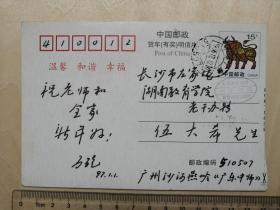 410012
中国邮政
贺年(有奖)明信片
Post of China
15分
中国邮政
CHINA
温馨 和谐 幸福
长沙市左家垅
湖南教育学院
老干办转
伍大希先生
祝老师和
全家
新年好!
97.1.1
邮政编码 510507
广州沙河燕岭